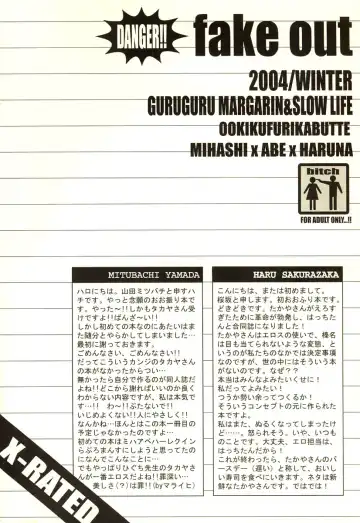 DANGER!!
fake out
2004/WINTER
GURUGURU MARGARIN&SLOW LIFE
OOKIKUFURIKABUTTE
MIHASHI x ABE x HARUNA
bitch
FOR ADULT ONLY..!!
MITUBACHI YAMADA
ハロにちは。山田ミツバチと申すハ
チです。やっと念願のおお振り本で
す。やった~!!しかもタカヤさん受
けですよ!!ばんざ~い!!
しかし初めての本なのにあたいはま
た随分とやらかしてしまいまして…
最初に謝っておきます。
ごめんなさい、ごめんなさい!!
だってこういうカンジのタカヤさん
の本がなかったからつい…
無かったら自分で作るのが同人誌だ
よね!!どこから謝ればいいのか良く
わからない内容ですが、私は本気で
す…!! わ~!!ぶたないで!!
いじめよくない!!人にやさしく!!
なんかね…ほんとはこの本一冊目の
予定じゃなかったのですよ…
初めての本はミハアベハーレクイン
らぶろまんすにしようと思ってたの
になんでこんなことに…
でもやっぱりひぐち先生のタカヤさん
が一番エロスだよね!!罪深い…
美しさ(?)は罪!!(byマライヒ)
HARU SAKURAZAKA
こんにちは、または初めまして。
桜坂と申します。初おおふり本です。
どきどきです。たかやさんがえろす
ぎたために革命が勃発し、はっちた
んと合同誌になりました!
たかやさんはエロスの使いで、榛名
は目も当てられないような変態、と
いうのが私たちのなかでは決定事項
なのですが、世の中にはそういう本
がないのです。なぜ??
本当はみんなよみたいくせに!
私だってよみたい!
つうか勢い余ってつくるか!
そういうコンセプトの元に作られた
本ですよ。
私はまだ、ぬるくなってしまったけ
ど……。怒られそう。いや、いつも
のことです。大丈夫、エロ担当は、
はっちたんだから!
これが終わったら、たかやさんのバ
ースデー(遅い)と称して、おいし
い寿司を食べにいきます。ネタは新
鮮なたかやさんです。ではでは!
X-RATED